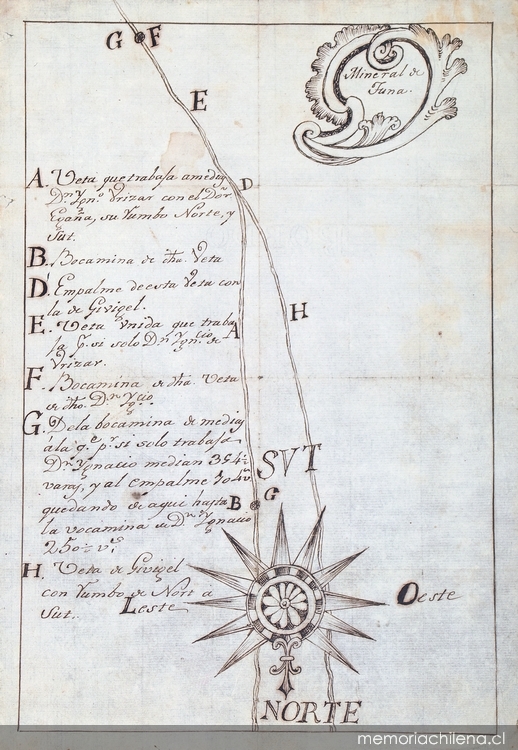 G F
Mineral de
Tuna.
E
A Veta que trabaja a medias
Dn. Ygno. Vrizar con el Dor.
Egaña, su rumbo Norte, y
Sut.
D
B. Bocamina de dha. Veta
D. Empalme de esta Veta con
la de Givigel.
E. Veta Vnida que traba
ja pr. si solo Dn. Ygncio. de
Vrizar.
A
H
F. Bocamina de dha. Veta
de dho. Dn. Ygcio.
G. De la bocamina de medias
á la qe. pr. si solo trabaja
Dn. Ygnacio median 354
varas, y al empalme 104
quedando de aqui hasta
la vocamina de Dn. Ygnacio
250
SVT
B G
H. Veta de Givigel
con rumbo de Nort a
Sut.
Leste
Oeste
NORTE
memoriachilena.cl